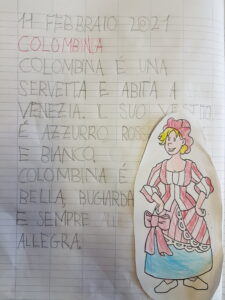 11 FEBBRAIO 2021
COLOMBINA
COLOMBINA É UNA
SERVETTA E ABITA A
VENEZIA. IL SUO VESTITO
É AZZURRO ROSSO
E BIANCO.
COLOMBINA É
BELLA, BUGIARDA
E SEMPRE
ALLEGRA.